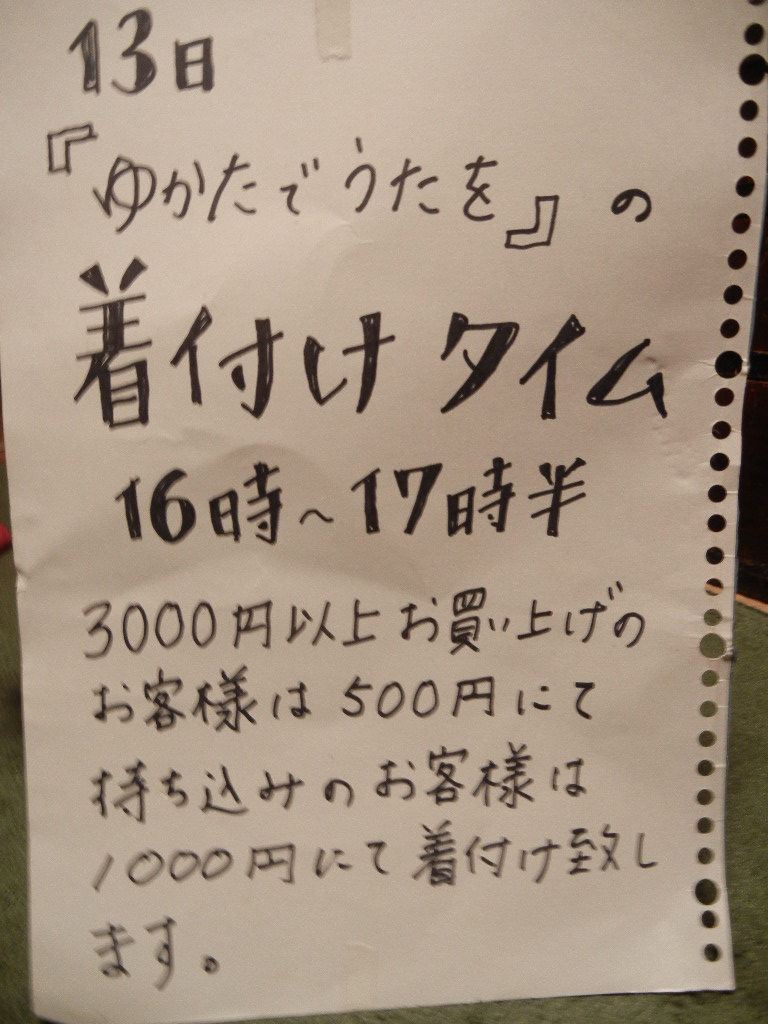 13日
『ゆかたでうたを』の
着付けタイム
16時～17時半
3000円以上お買い上げの
お客様は500円にて
持ち込みのお客様は
1000円にて着付け致し
ます。